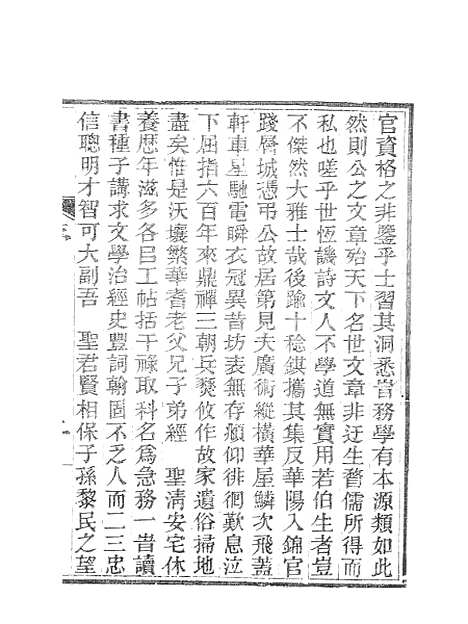 官資格之非鑒乎士習其洞悉當務學有本源類如此
然則公之文章殆天下名世文章非迂生瞀儒所得而
私也嗟乎世恆譏詩文人不學道無實用若伯生者豈
不傑然大雅士哉後踰十稔錤攜其集反華陽入錦官
踐層城憑弔公故居第見夫廣術縱橫華屋鱗次飛蓋
軒車星馳電瞬衣冠異昔坊表無存頫仰徘徊歎息泣
下屈指六百年來鼎禪三朝兵燹攸作故家遺俗掃地
盡矣惟是沃壤繁華耆老父兄子弟經 聖淸安宅休
養歴年滋多各㠯工帖括干祿取科名爲急務一旹讀
書種子講求文學治經史豐詞翰固不乏人而一二忠
信聰明才智可大副吾 聖君賢相保子孫黎民之望